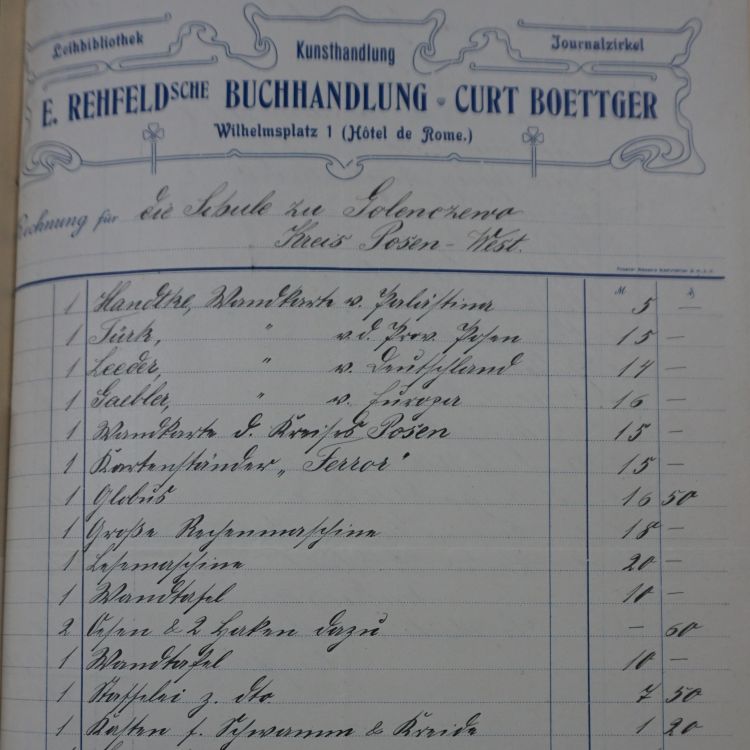 Leihbibliothek
Kunsthandlung
Journalzirkel
E. REHFELDSCHE BUCHHANDLUNG · CURT BOETTGER
Wilhelmsplatz 1 (Hôtel de Rome.)
Rechnung für die Schule zu Golenczewo
Kreis Posen-West.
M. ₰
1 Handtke, Wandkarte v. Palästina 5 —
1 Türk, " v. d. Prov. Posen 15 —
1 Leeder, " v. Deutschland 14 —
1 Gaebler, " v. Europa 16 —
1 Wandkarte d. Kreises Posen 15 —
1 Kartenständer „Terror" 15 —
1 Globus 16 50
1 Große Rechenmaschine 18 —
1 Lesemaschine 20 —
1 Wandtafel 10 —
2 Oesen & 2 Haken dazu — 60
1 Wandtafel 10 —
1 Staffelei z. dto 7 50
1 Kasten f. Schwamm & Kreide 1 20